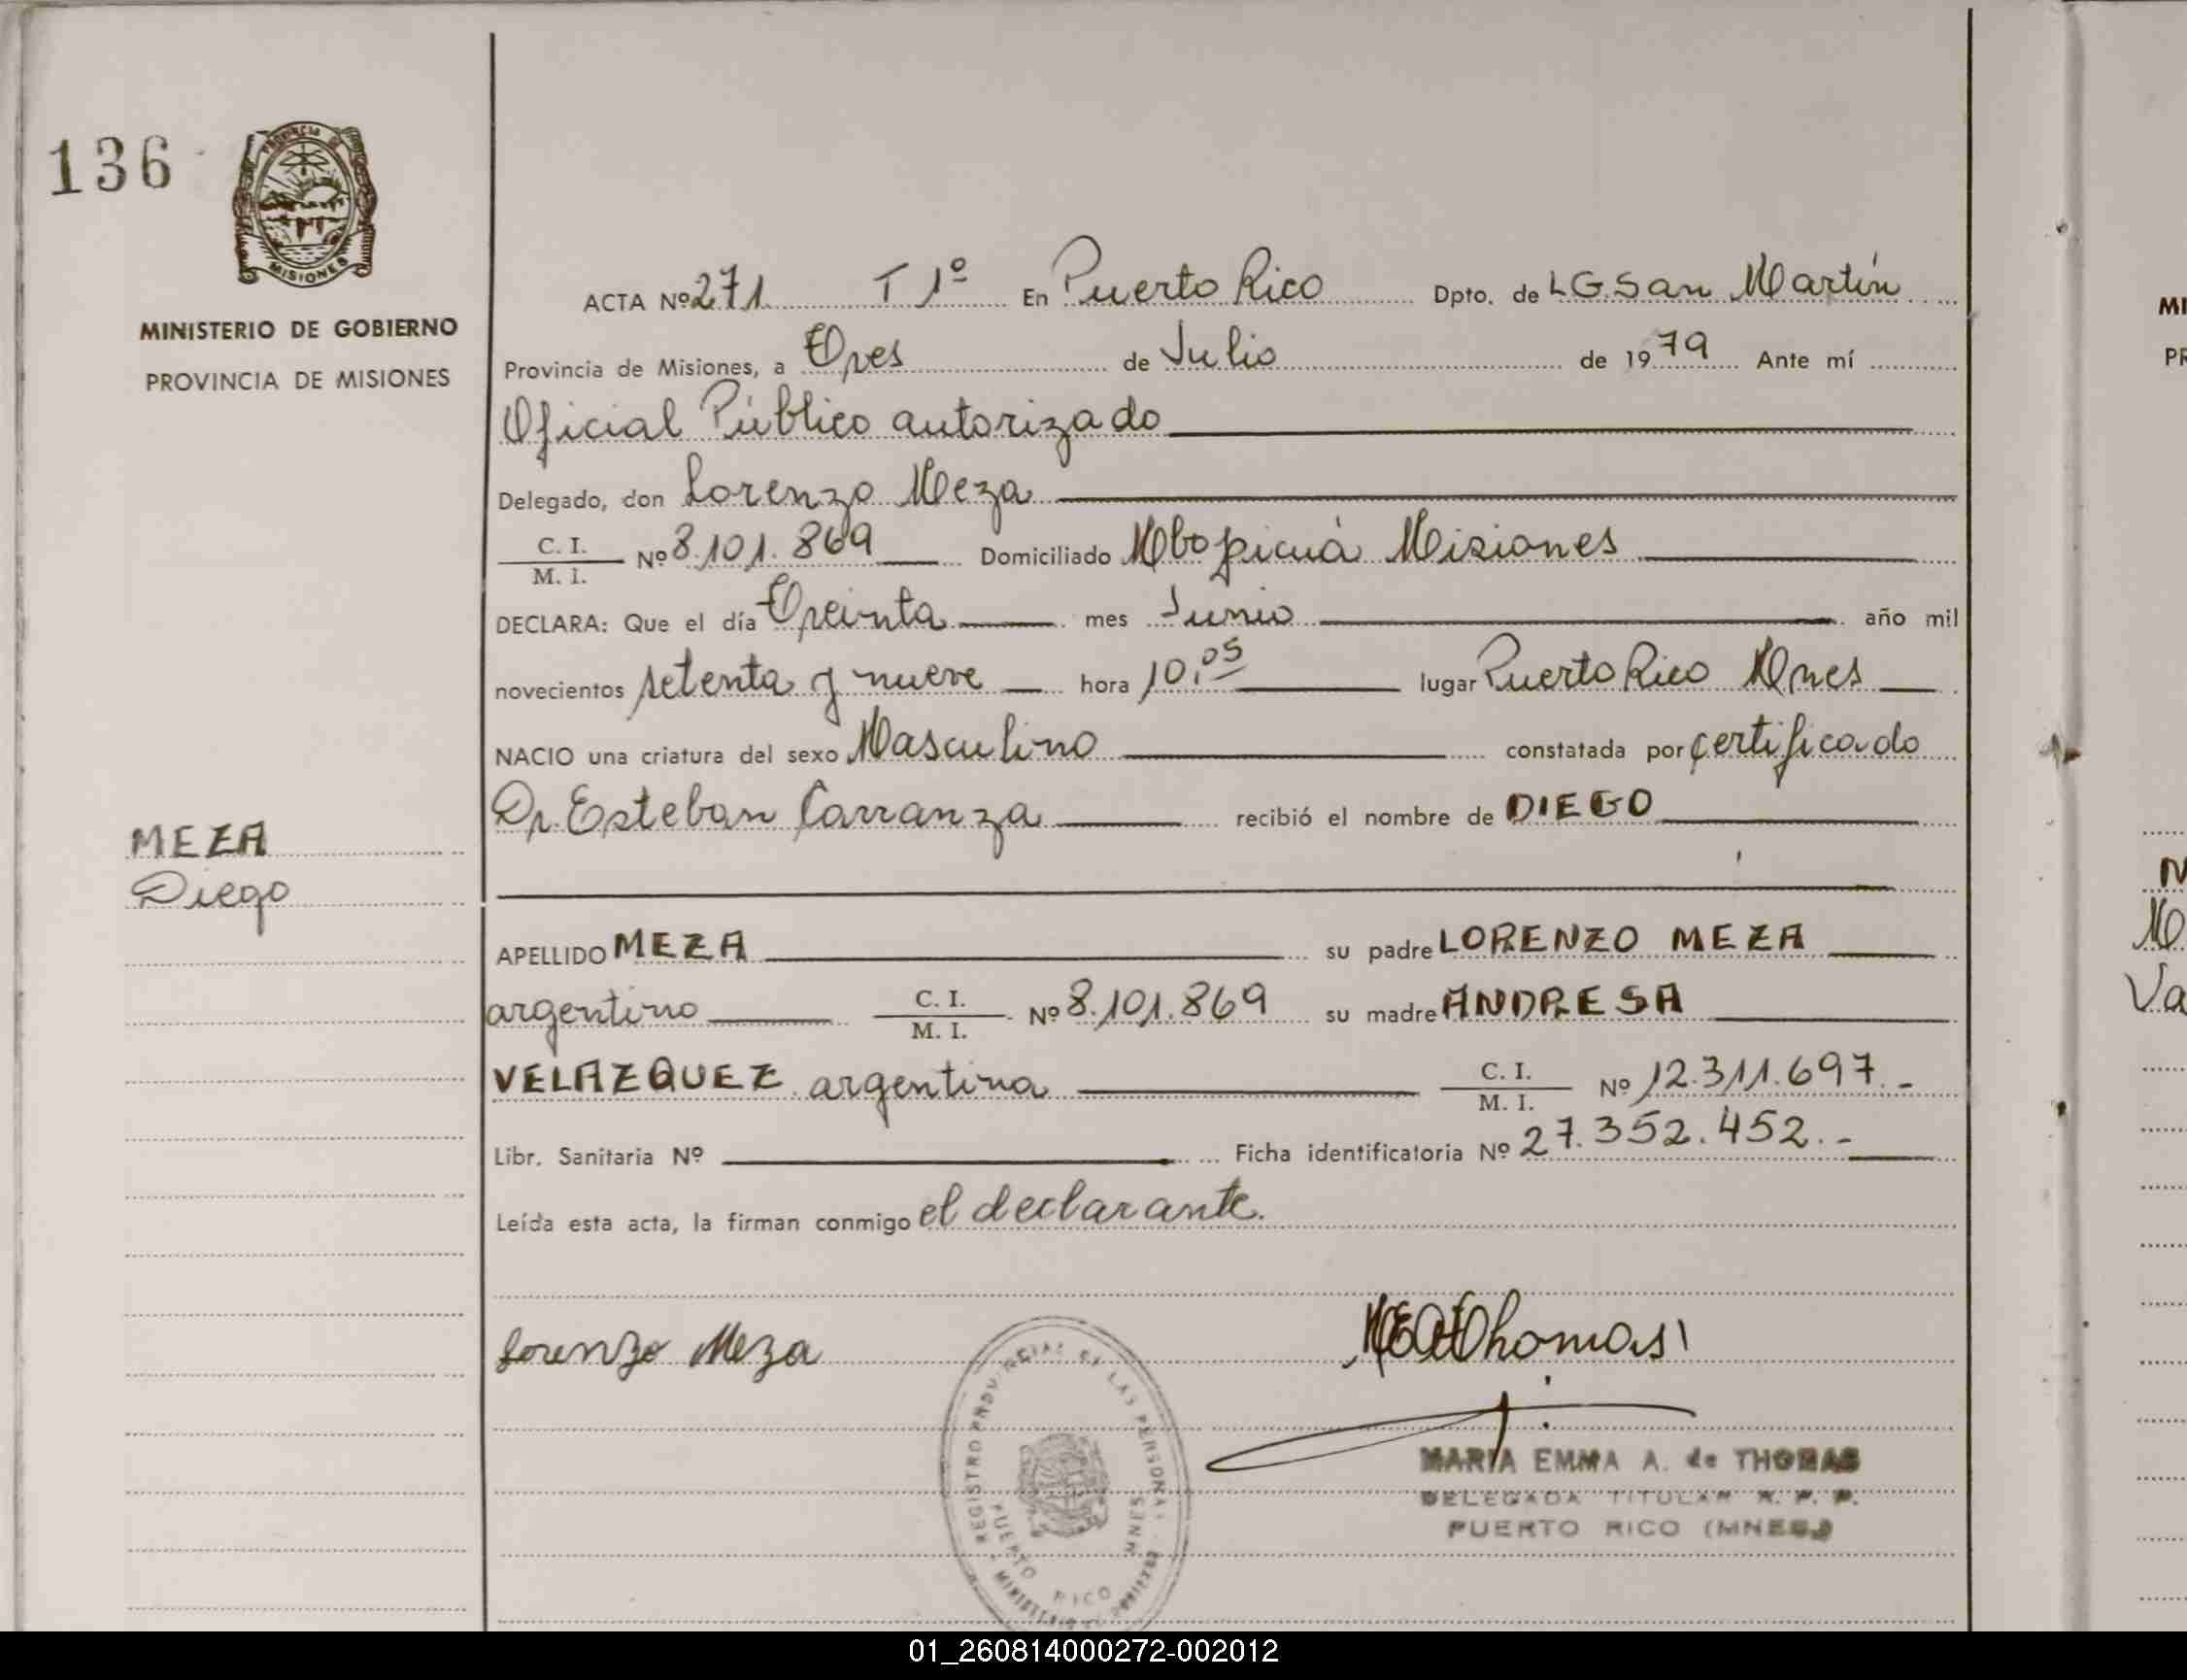 136
PROVINCIA DE
MISIONES
MINISTERIO DE GOBIERNO
PROVINCIA DE MISIONES
MEZA
Diego
ACTA Nº 271 T 1º En Puerto Rico Dpto. de L G. San Martín
Provincia de Misiones, a Tres de Julio de 1979 Ante mí
Oficial Público autorizado
Delegado, don Lorenzo Meza
C. I. / M. I. Nº 8.101.869 Domiciliado Mbopicuá Misiones
DECLARA: Que el día Treinta mes Junio año mil
novecientos setenta y nueve hora 10,05 lugar Puerto Rico Mnes
NACIO una criatura del sexo Masculino constatada por certificado
Dr. Esteban Carranza recibió el nombre de DIEGO
APELLIDO MEZA su padre LORENZO MEZA
argentino C. I. / M. I. Nº 8.101.869 su madre ANDRESA
VELAZQUEZ argentina C. I. / M. I. Nº 12.311.697.-
Libr. Sanitaria Nº Ficha identificatoria Nº 27.352.452.-
Leída esta acta, la firman conmigo el declarante.
Lorenzo Meza
MEAdeThomas
REGISTRO PROVINCIAL DE LAS PERSONAS
PUERTO RICO MNES
MARIA EMMA A. de THOMAS
DELEGADA TITULAR R. P. P.
PUERTO RICO (MNES.)
MI
PR
M
Va
01_260814000272-002012